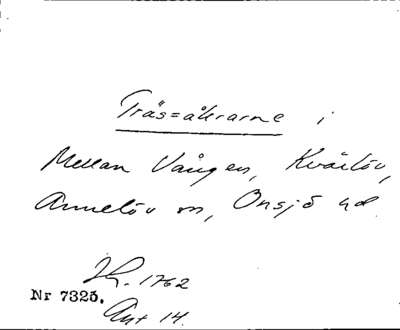 Träs=åkrarne i
Mellan Vången, Kvärlöv,
Annelöv sn, Onsjö hd
Sk. 1762
Nr 7325.
Akt 14.